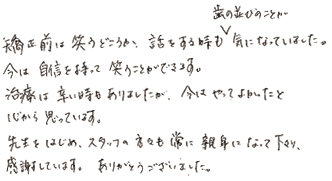 矯正前は笑うどころか、話をする時も歯の並びのことが気になっていました。
今は自信を持って笑うことができます。
治療は辛い時もありましたが、今はやってよかったと
心から思っています。
先生をはじめ、スタッフの方々も常に親身になって下さり、
感謝しています。ありがとうございました。